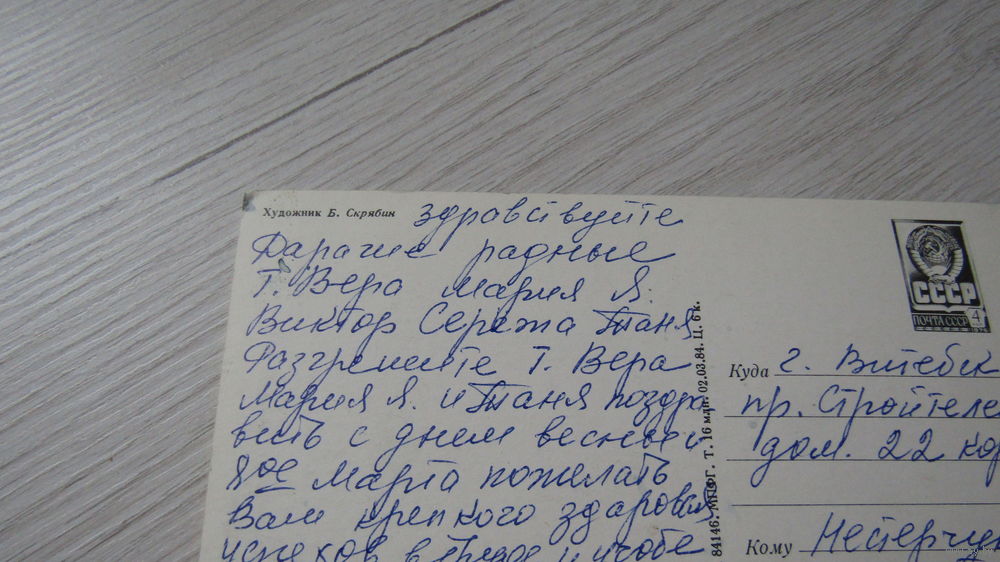 Художник Б. Скрябин
здравствуйте
Дарагие радные
Т. Вера Мария Я.
Виктор Сережа Таня
Разгрешите Т. Вера
Мария Я. и Таня поздра
весть с днем весны и
8ое Марта пожелать
Вам крепкого здаровия
успехов в труде и учобе
84146. МПФГ. Т. 16 млн. 02.03.84. Ц. 6 к.
СССР
4
ПОЧТА СССР
Куда г. Витебск
пр. Строителе
дом. 22 кор
Кому Нестерчук